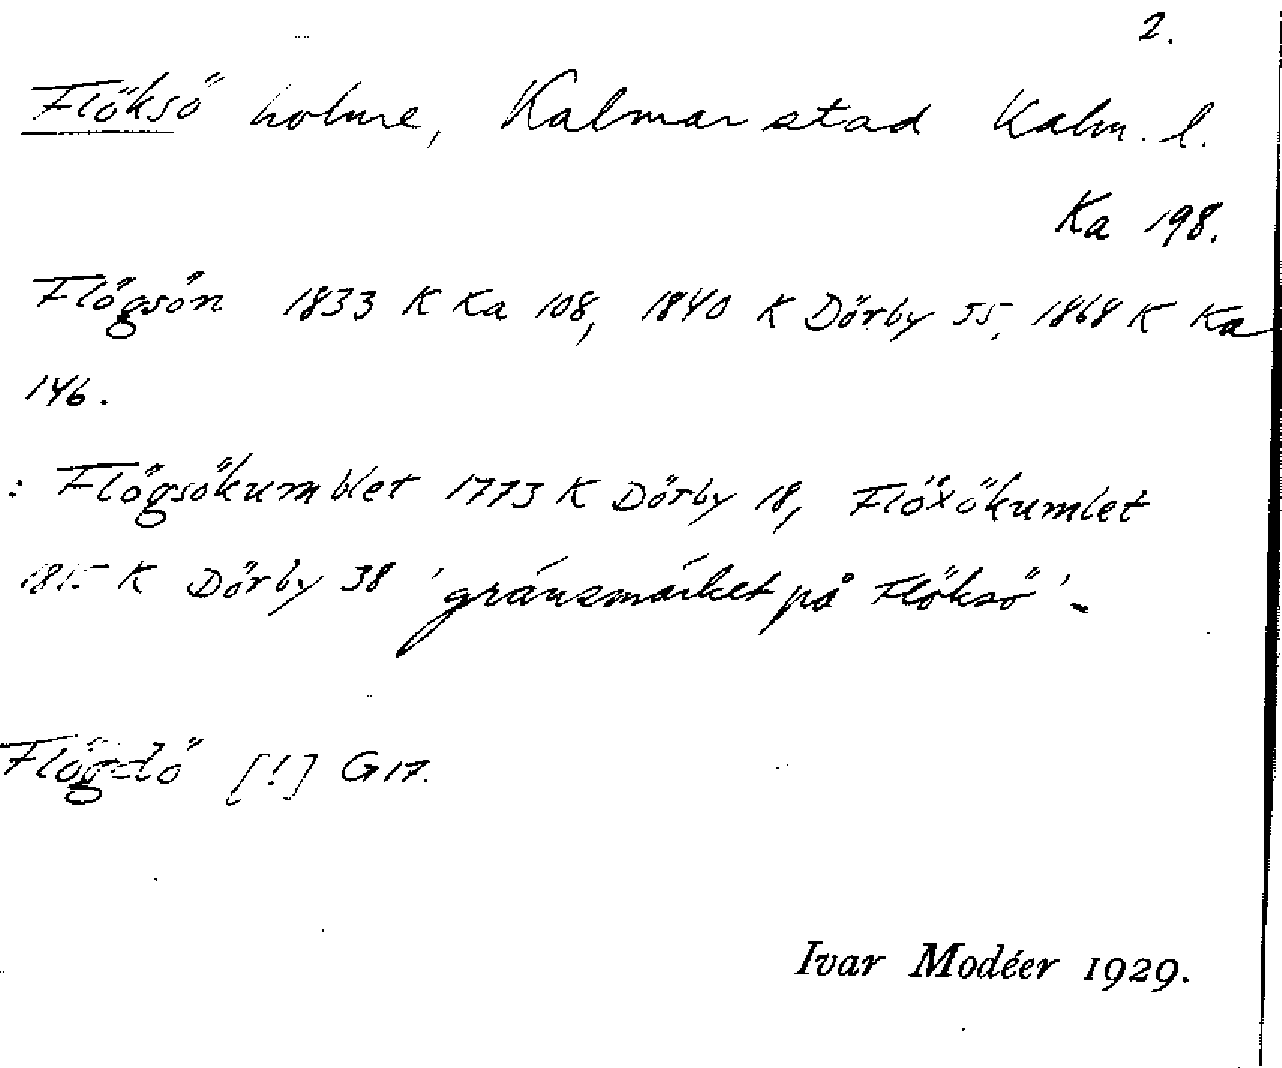 2.
Flöksö holme, Kalmar stad Kalm. l.
Ka 198.
Flögsön 1833 K Ka 108, 1840 K Dörby 55, 1868 K Ka
146.
: Flögsökumblet 1773 K Dörby 18, Flöxökumlet
K Dörby 38 'gränsmärket på Flöksö'.
Flögdö [!] G 17.
Ivar Modéer 1929.